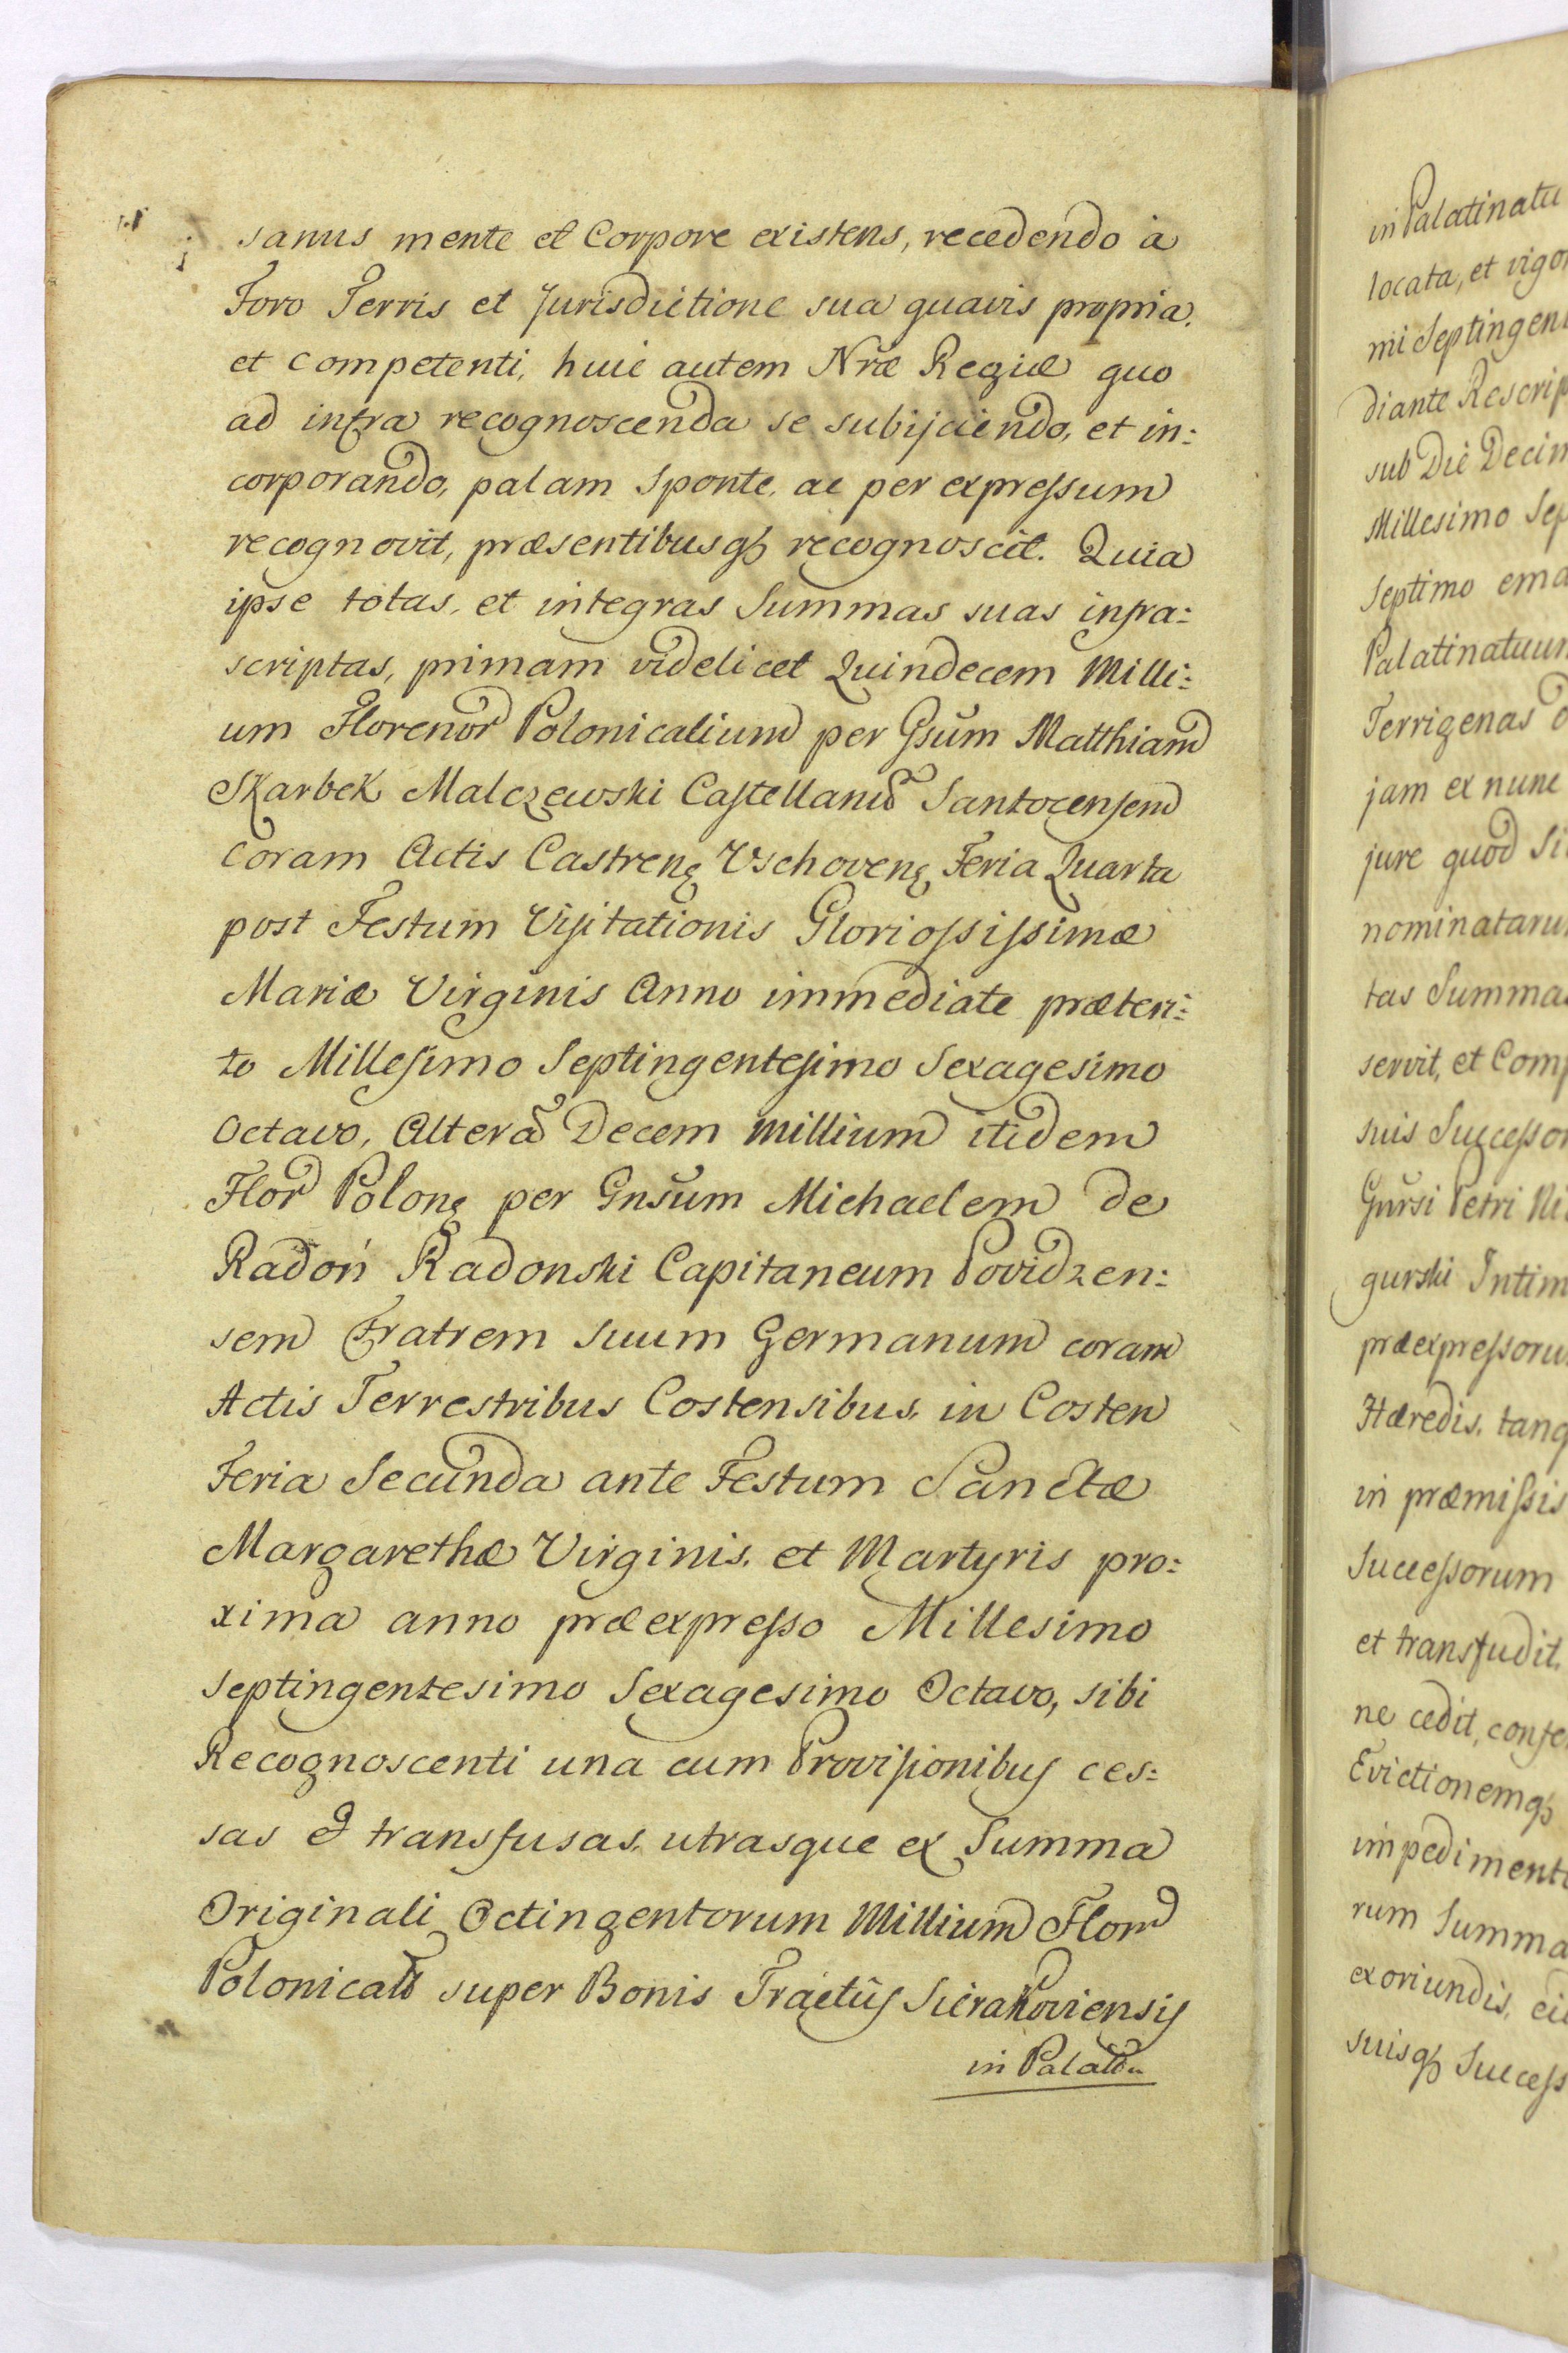 sanus mente et Corpore existens, recedendo à
Foro Terris et Jurisdictione sua quavis propria.
et competenti, huic autem Nræ Regiæ quo
ad infra recognoscenda se subijciendo, et in:
corporando, palam sponte, ac per expressum
recognovit, præsentibusqȝ recognoscit. Quia
ipse totas, et integras Summas suas infra:
scriptas, primam videlicet Quindecem Milli:
um Florenor Polonicalium per Gsum Matthiam
Skarbek Malczewski Castellanū Santocensem
Coram Actis Castrenȝ Vschovenȝ Feria Quarta
post Festum Visitationis Gloriossissimæ
Mariæ Virginis Anno immediate præteri:
to Millesimo Septingentesimo Sexagesimo
Octavo, Alterā Decem Millium itidem
Flor Polonȝ per Gnsum Michaelem de
Radoń Radonski Capitaneum Povidzen:
sem Fratrem suum Germanum coram
Actis Terrestribus Costensibus, in Costen
Feria Secunda ante Festum Sanctæ
Margarethæ Virginis, et Martyris pro:
xima anno præexpresso Millesimo
Septingentesimo Sexagesimo Octavo, sibi
Recognoscenti una cum Provisionibus ces:
sas & transfusas, utrasque ex Summa
Originali Octingentorum Millium Flor
Polonical super Bonis Tractûs Sierakoviensis
in Palatu
in Palatinatu
locata, et vigo
mi Septingen
diante Rescrip
sub Die Decim
Millesimo Sep
Septimo ema
Palatinatuum
Terrigenas
jam ex nunc
jure quod Si
nominatarum
tas Summas
servit, et Comp
suis Successor
Gursi Petri Ni
gurski Intim
præexpressoru
Hæredis, tanq
in præmissis
Successorum
et transfudit,
ne cedit, confe
Evictionemqȝ
impedimento
rum Summa
exoriundis, ei
suisqȝ Success